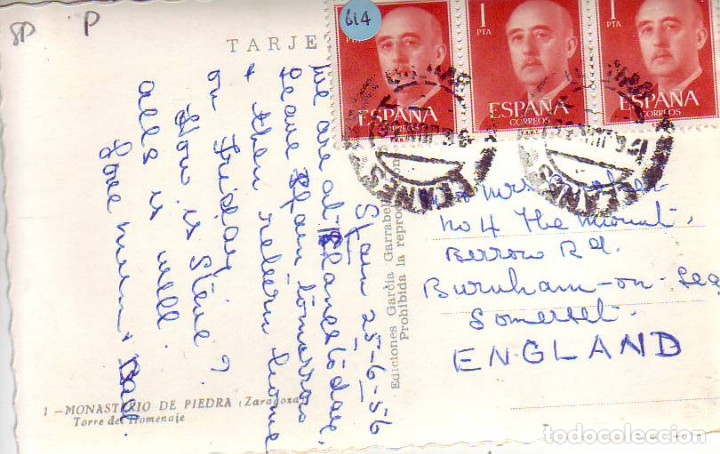 8P
P
TARJE
614
1
PTA
ESPAÑA
CORREOS
1
PTA
ESPAÑA
CORREOS
1
PTA
ESPAÑA
CORREOS
LLANES
Spain 25-6-56
We are at Llanes today,
leave Spain tomorrow
& then return home
on Friday.
How is Steve?
alls is well.
Love Mum & Dad.
Ediciones García Garrabella
Prohibida la repro
Mrs
No 4 The Mount,
Berrow Rd.
Burnham-on-Sea
Somerset.
ENGLAND
1 - MONASTERIO DE PIEDRA (Zaragoza)
Torre del Homenaje
todocoleccion